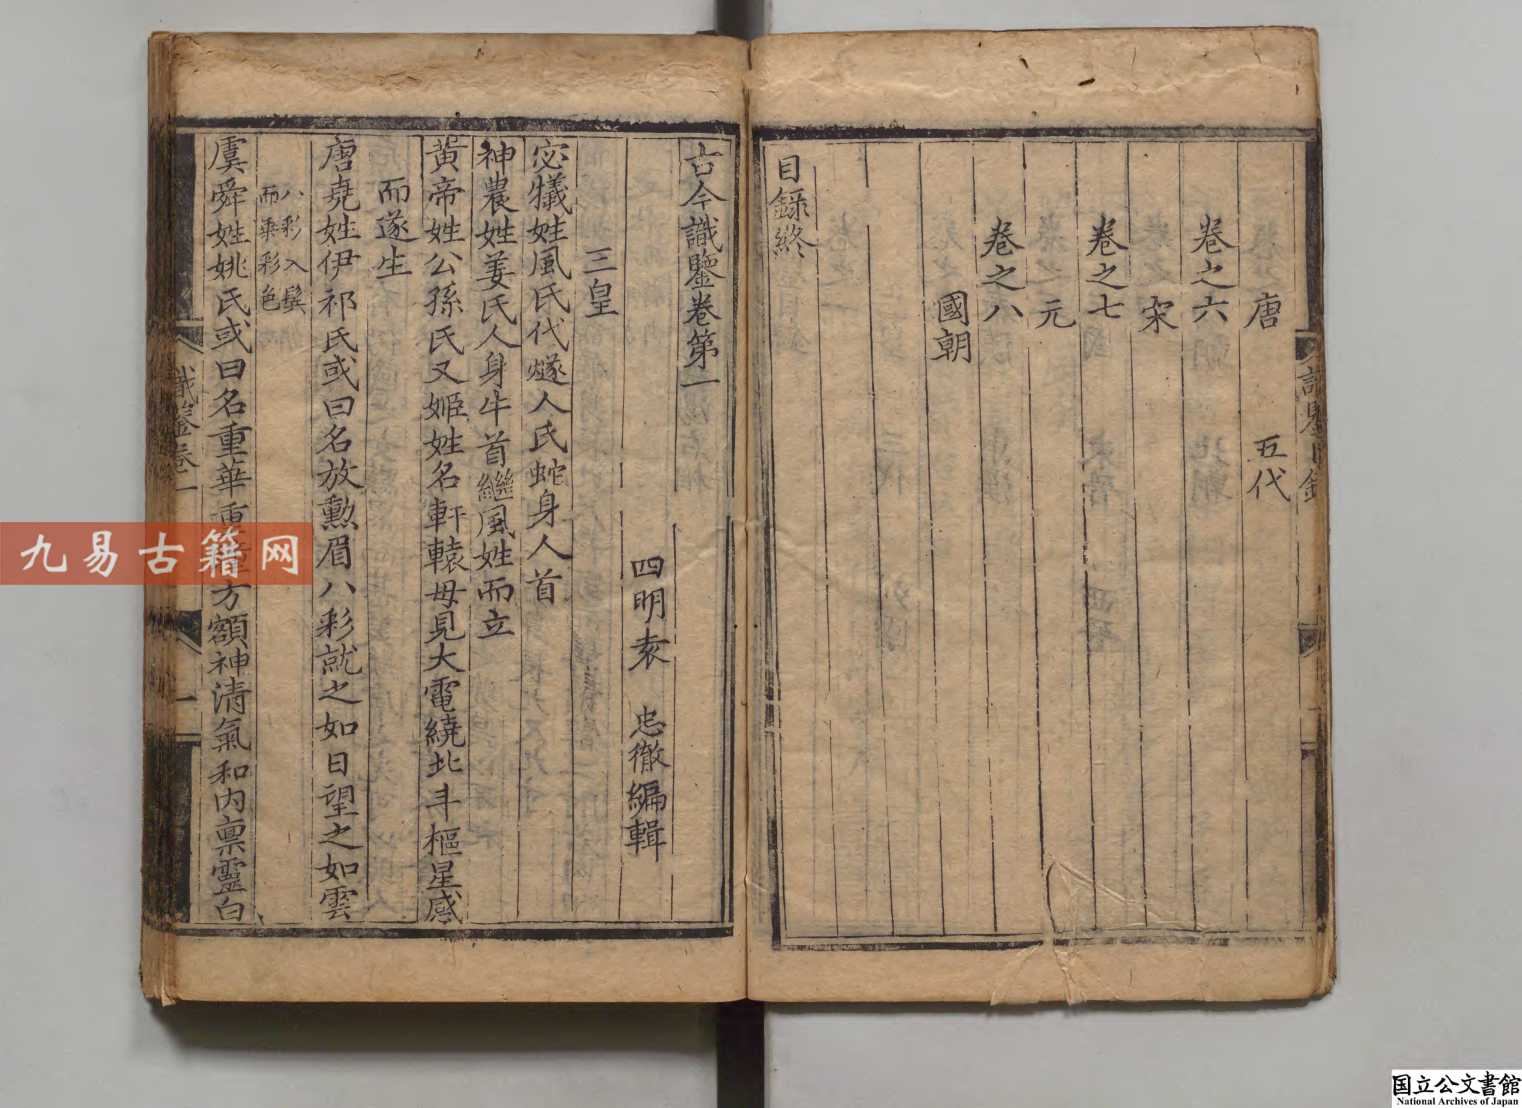 唐　五代
卷之六
宋
卷之七
元
卷之八
國朝
目錄終
古今識鑒卷第一
四明袁　忠徹編輯
三皇
宓犧姓風氏代燧人氏蛇身人首
神農姓姜氏人身牛首繼風姓而立
黃帝姓公孫氏又姬姓名軒轅母見大電繞北斗樞星感
而遂生
唐堯姓伊祁氏或曰名放勲眉八彩就之如日望之如雲
八彩入鬂
而乘彩色
虞舜姓姚氏或曰名重華重方額神清氣和內禀靈白
識鑒卷一
九易古籍网
国立公文書館
National Archives of Japan